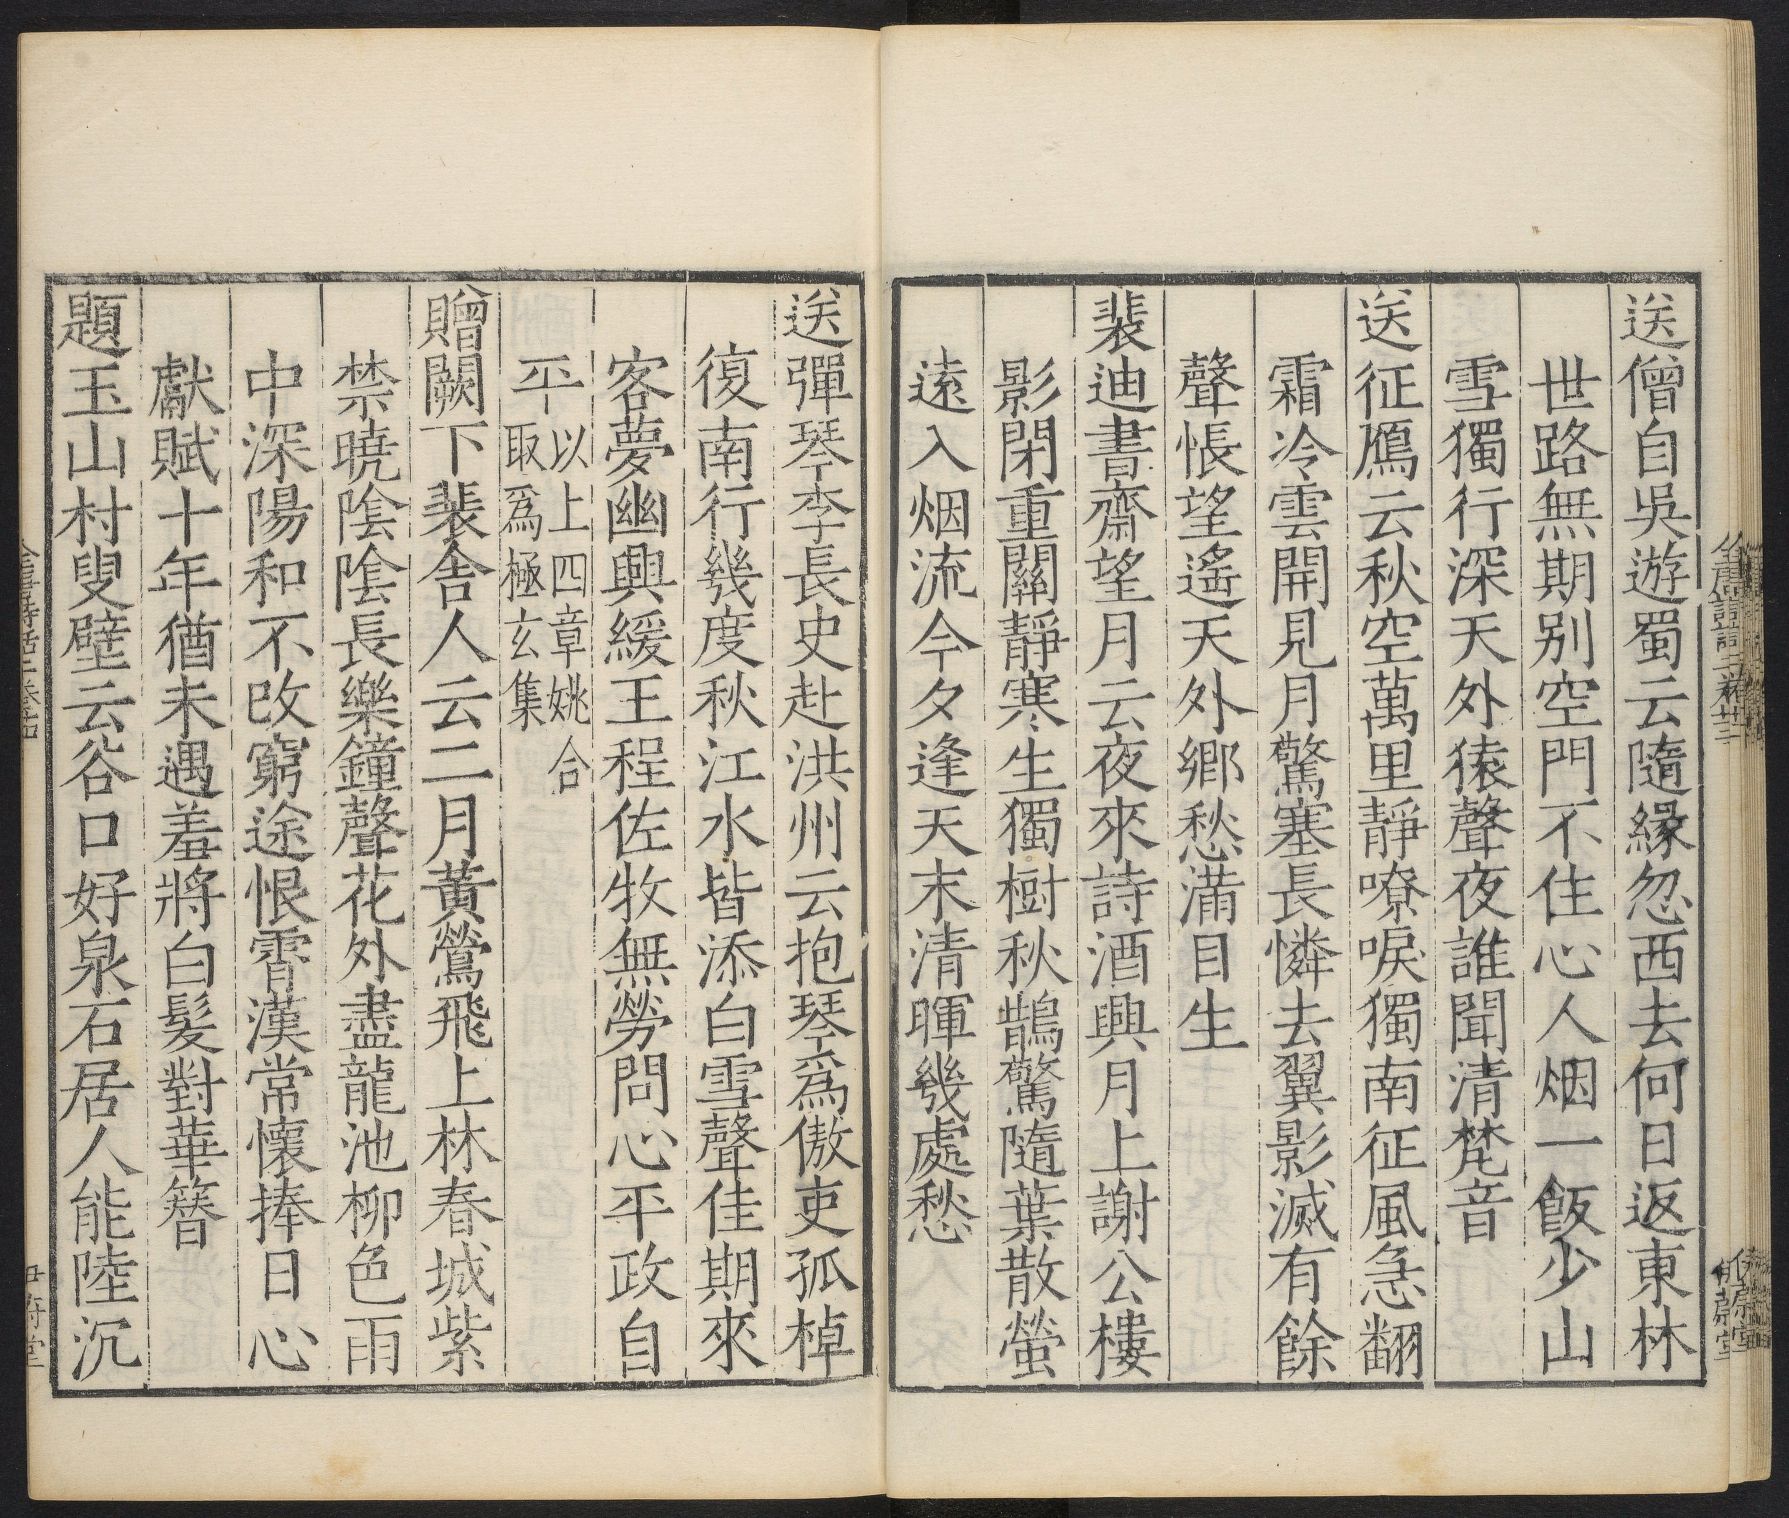 送僧自吳遊蜀云隨緣忽西去何日返東林
世路無期别空門不住心人烟一飯少山
雪獨行深天外猿聲夜誰聞清梵音
送征鴈云秋空萬里靜嘹唳獨南征風急翻
霜冷雲開見月驚塞長憐去翼影滅有餘
聲悵望遙天外鄉愁滿目生
裴迪書齋望月云夜來詩酒興月上謝公樓
影閉重關靜寒生獨樹秋鵲驚隨葉散螢
遠入烟流今夕逢天末清暉幾處愁
送彈琴李長史赴洪州云抱琴爲傲吏孤棹
復南行幾度秋江水皆添白雪聲佳期來
客夢幽興緩王程佐牧無勞問心平政自
平以上四章姚合
取爲極玄集
贈闕下裴舍人云二月黃鶯飛上林春城紫
禁曉陰陰長樂鐘聲花外盡龍池柳色雨
中深陽和不改窮途恨霄漢常懷捧日心
獻賦十年猶未遇羞將白髮對華簪
題玉山村叟壁云谷口好泉石居人能陸沉